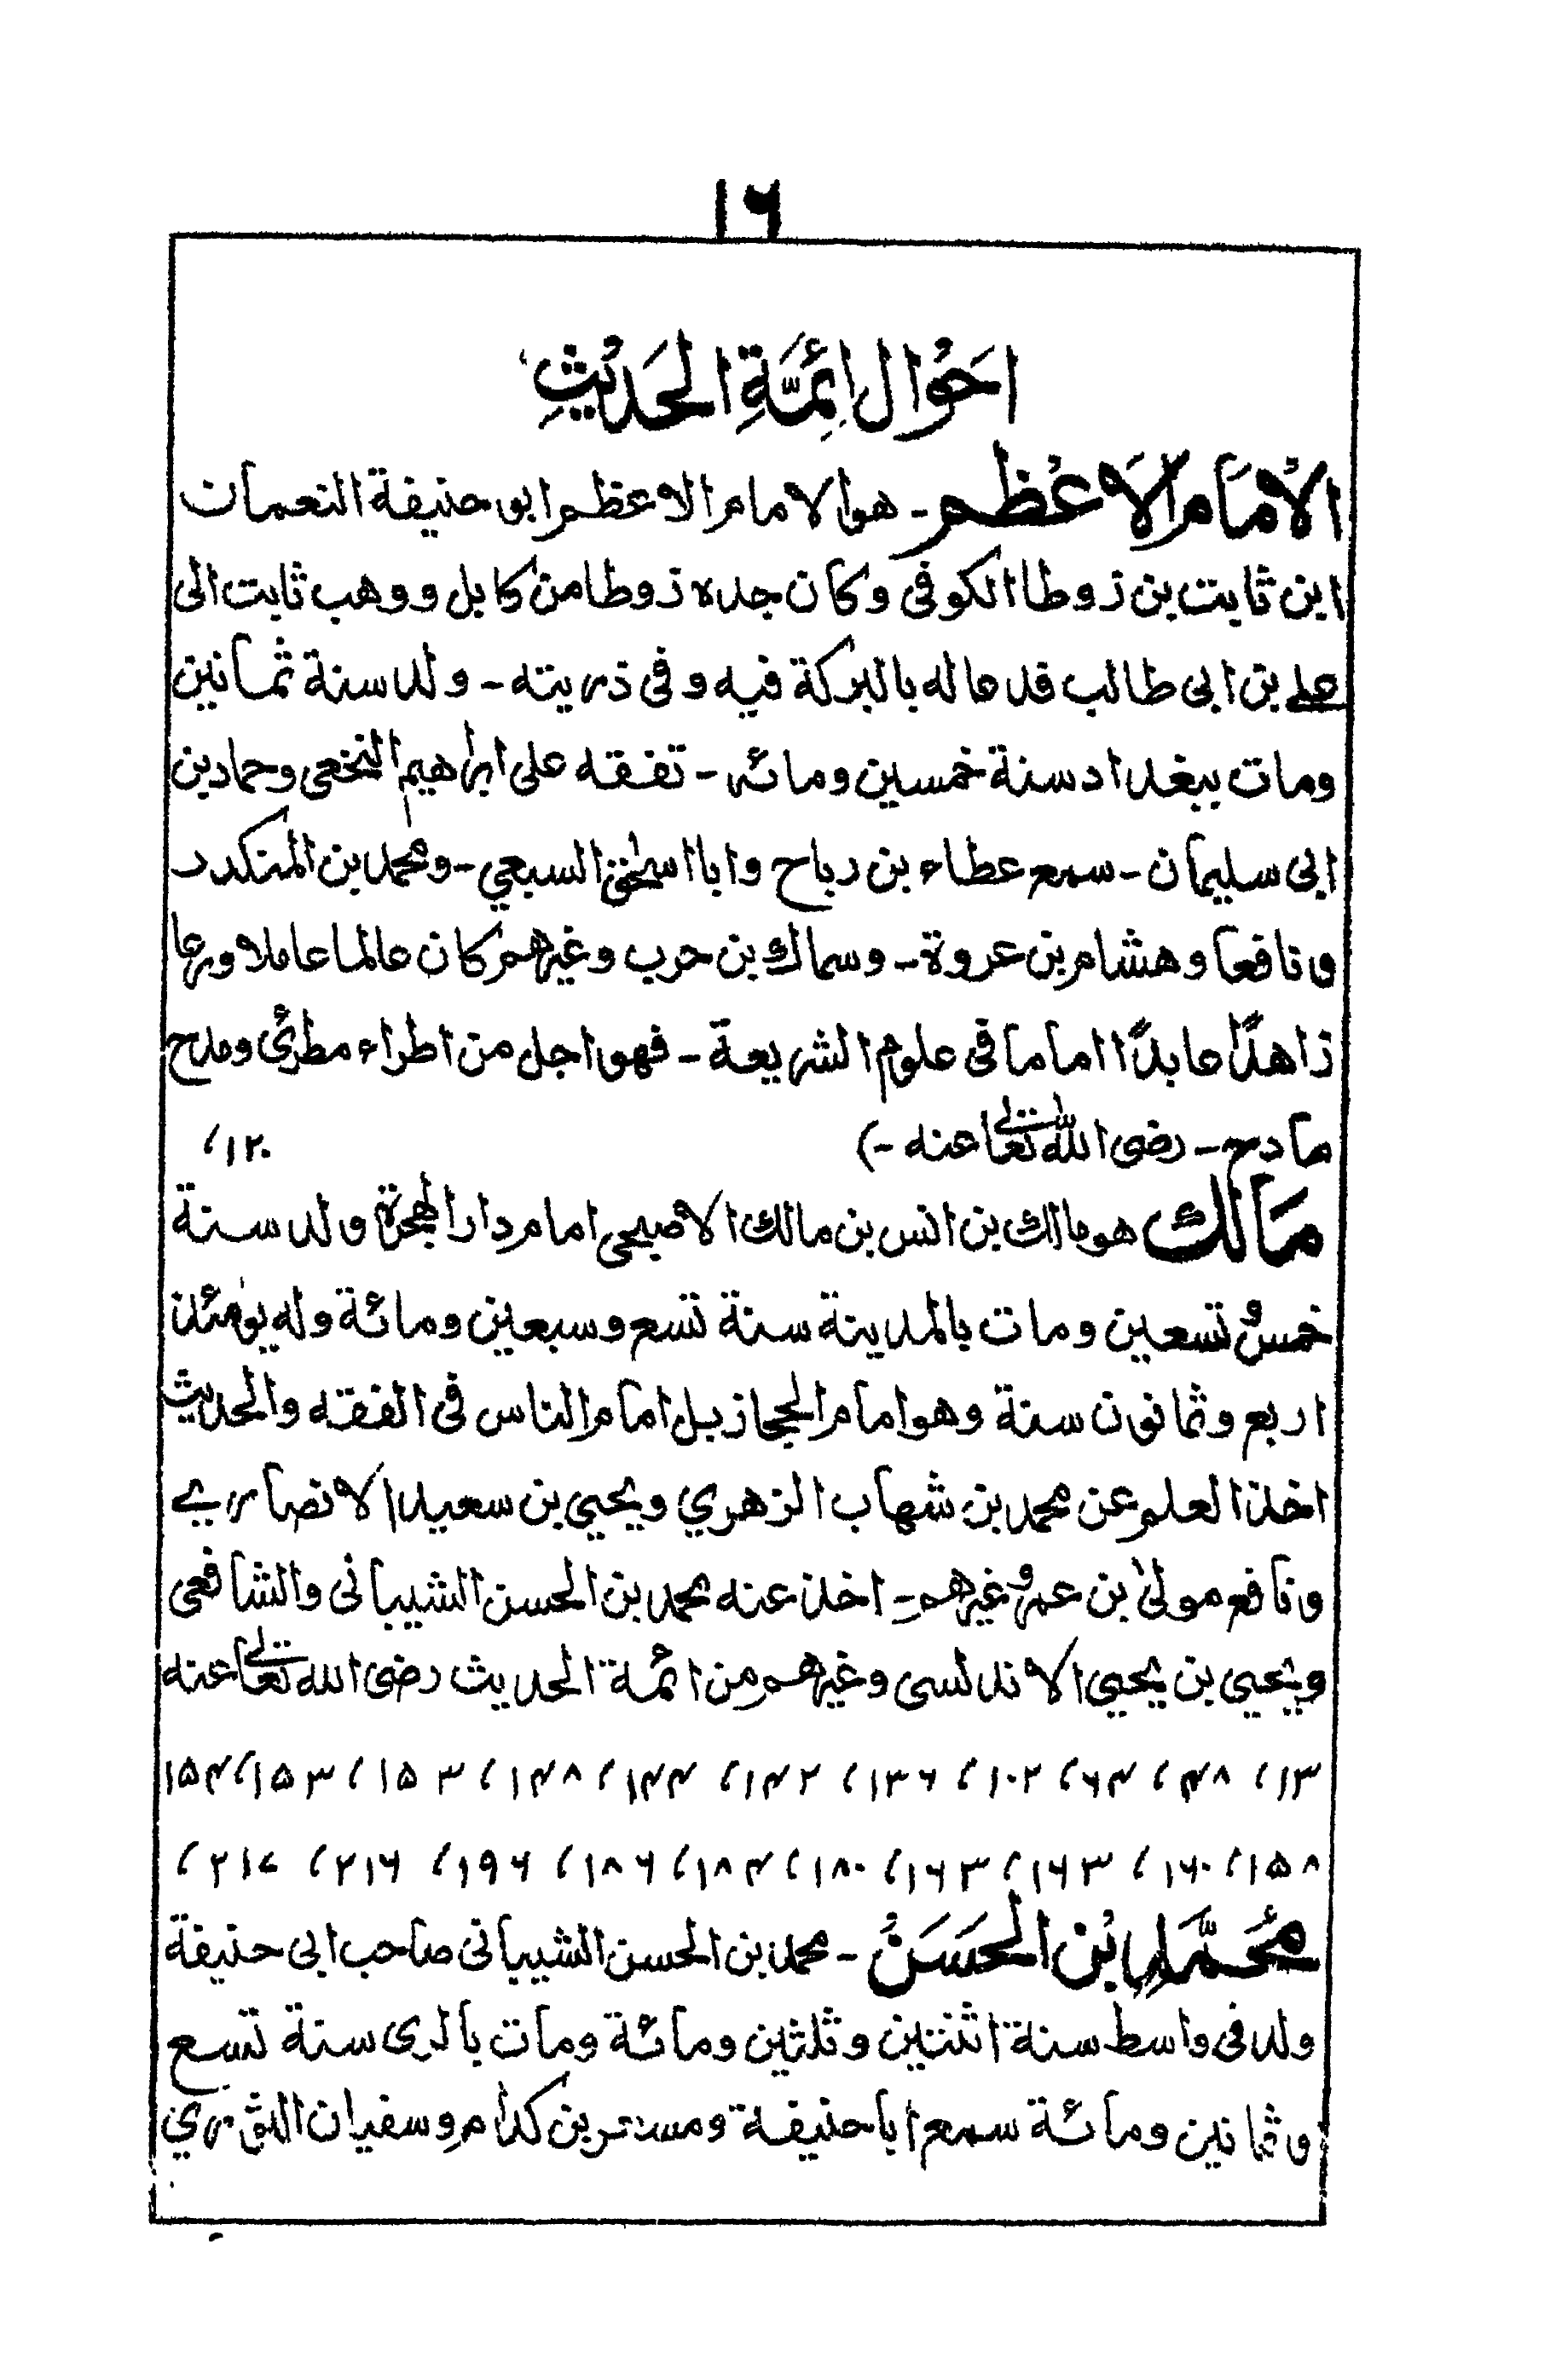 ١٦
اَحْوَال اَئِمَّةِ الحَدِيْثِ
الاِمَام الاَعْظم - هو الامام الاعظم ابو حنيفة النعمان
ابن ثابت بن زوطا الكوفى وكان جده زوطا من كابل ووهب ثابت الى
على بن ابى طالب فدعا له بالبركة فيه وفى ذريته - ولد سنة ثمانين
ومات ببغداد سنة خمسين ومائه - تفقه على ابراهيم النخعى وحماد بن
ابى سليمان - سمع عطاء بن رباح وابا اسحٰق السبعي - ومحمد بن المنكدر
ونافعا وهشام بن عروة - وسماك بن حرب وغيرهم كان عالما عاملا ورعا
زاهدًا عابدًا اماما فى علوم الشريعة - فهو اجل من اطراء مطرئ ومدح
مادح - رضى الله تعالى عنه -) ١٢٠،
مَالك هو مالك بن انس بن مالك الاصبحى امام دار الهجرة ولد سنة
خمس وتسعين ومات بالمدينة سنة تسع وسبعين ومائة وله يومئذ
اربع وثمانون سنة وهو امام الحجاز بل امام الناس فى الفقه والحديث
اخذ العلم عن محمد بن شهاب الزهري ويحيي بن سعيد الانصارى
ونافع مولىٰ بن عمر وغيرهم - اخذ عنه محمد بن الحسن الشيبانى والشافعى
ويحيي بن يحيي الاندلسى وغيرهم من ائمة الحديث رضى الله تعالى عنه
١٣، ٤٨، ٦٤، ١٠٢، ١٣٦، ١٤٢، ١٤٤، ١٤٨، ١٥٣، ١٥٣، ١٥٤
١٥٨، ١٦٠، ١٦٣، ١٦٣، ١٨٠، ١٨٤، ١٨٦، ١٩٦، ٢١٦، ٢١٧،
مُحَمَّد بْن الحَسَن - محمد بن الحسن الشيبانى صاحب ابى حنيفة
ولد فى واسط سنة اثنتين وثلثين ومائة ومات بالرى سنة تسع
وثمانين ومائة سمع ابا حنيفة ومسعر بن كدام وسفيان الثوري